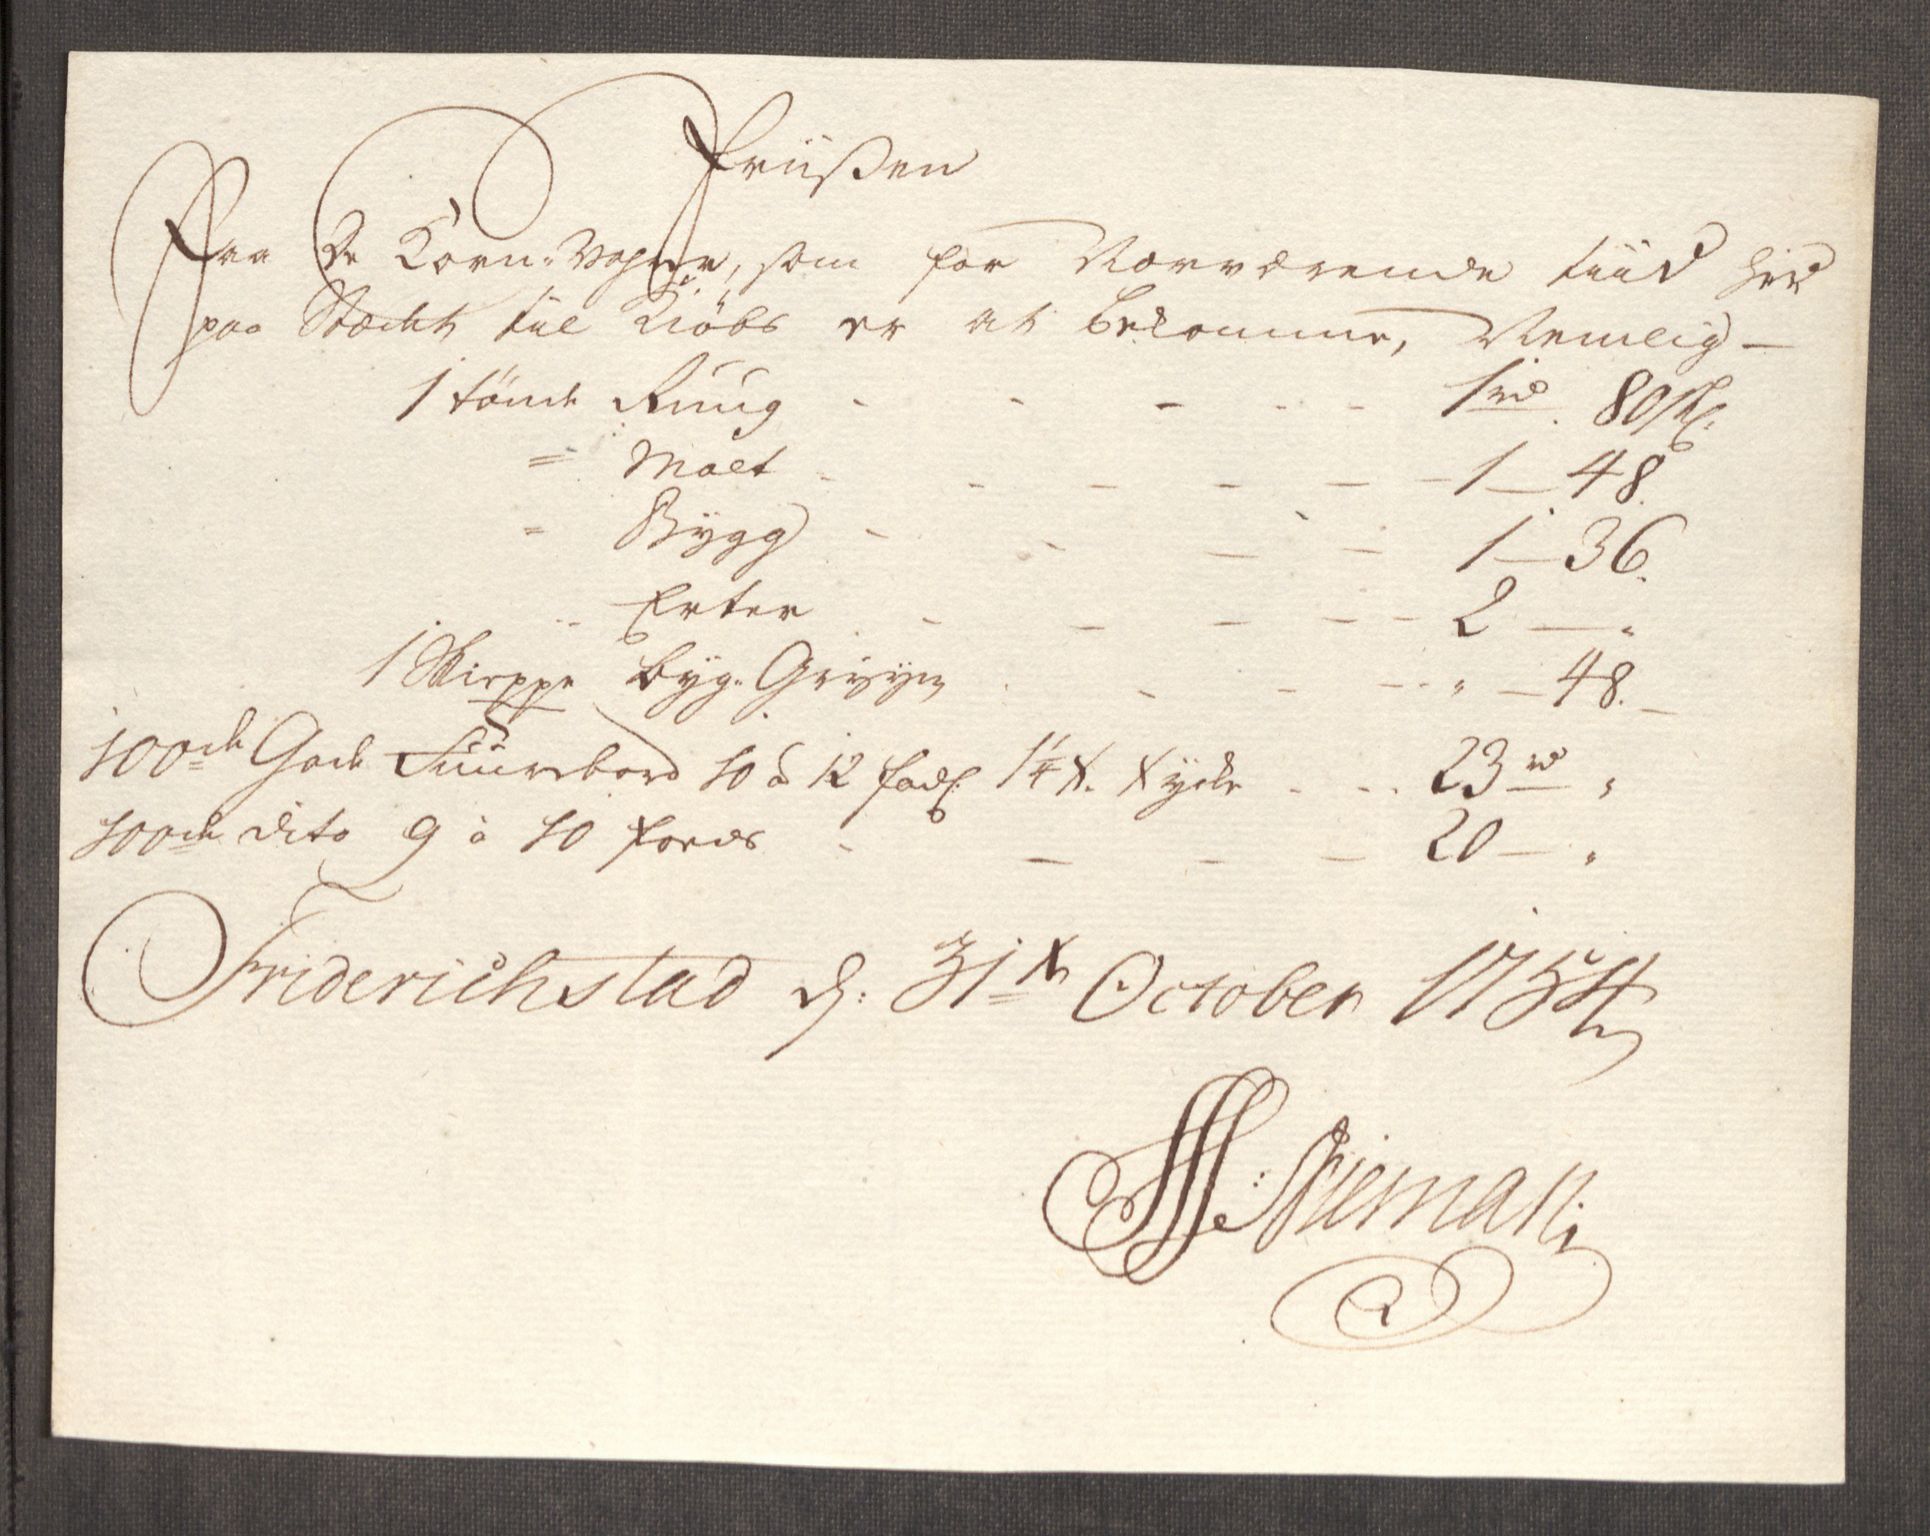 Priisen
Paa De Korn-Vahrer, som for Nærværende tiid her
paa Stædet til Kiöbs er at bekomme, Nemlig –
1 tönde Ruug - - - - - 1 rd. 80 sk.
= Malt - - - - - - 1 – 48.
= Bygg - - - - - 1 – 36.
" Erter - - - - - 2 – "
1 Skieppe byg-Gryyn - - - - " – 48. –
100de Gode Fuurebord 10 à 12 fods 1 1/4 t. tycke - - - 23 rd "
100de dito 9 à 10 fords - - - - 20 – "
Friderichstad d: 31te October 1754
Nieman